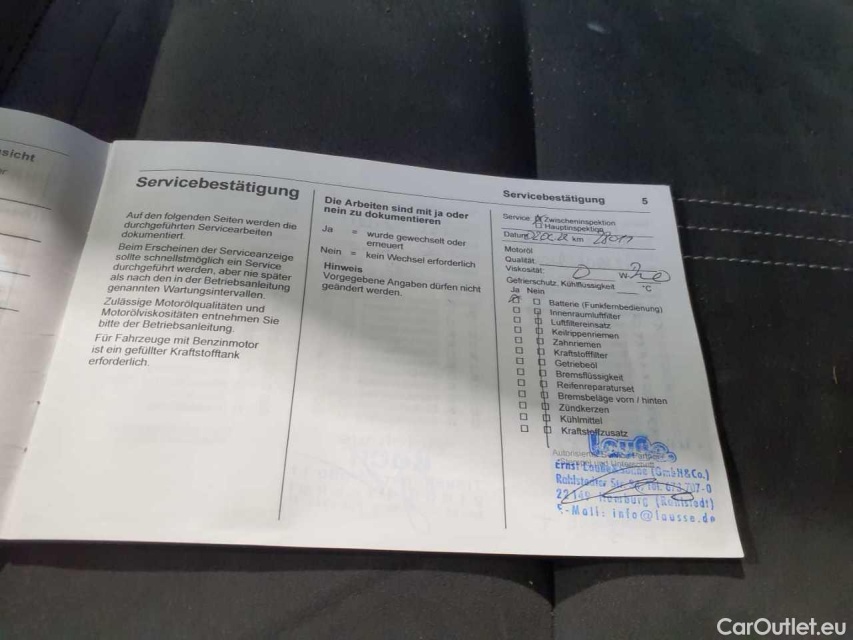 sicht
Servicebestätigung
Auf den folgenden Seiten werden die
durchgeführten Servicearbeiten
dokumentiert.
Beim Erscheinen der Serviceanzeige
sollte schnellstmöglich ein Service
durchgeführt werden, aber nie später
als nach den in der Betriebsanleitung
genannten Wartungsintervallen.
Zulässige Motorölqualitäten und
Motorölviskositäten entnehmen Sie
bitte der Betriebsanleitung.
Für Fahrzeuge mit Benzinmotor
ist ein gefüllter Kraftstofftank
erforderlich.
Die Arbeiten sind mit ja oder
nein zu dokumentieren
Ja = wurde gewechselt oder
erneuert
Nein = kein Wechsel erforderlich
Hinweis
Vorgegebene Angaben dürfen nicht
geändert werden.
Servicebestätigung 5
Service Zwischeninspektion
Hauptinspektion
Datum km
Motoröl
Qualität
Viskosität: 0 W 20
Gefrierschutz, Kühlflüssigkeit °C
Ja Nein
Batterie (Funkfernbedienung)
Innenraumluftfilter
Luftfiltereinsatz
Keilrippenriemen
Zahnriemen
Kraftstofffilter
Getriebeöl
Bremsflüssigkeit
Reifenreparaturset
Bremsbeläge vorn / hinten
Zündkerzen
Kühlmittel
Kraftstoffzusatz
Ernst (GmbH&Co.)
Rahlstedter Str. 707-0
22149 Hamburg (Rahlstedt)
E-Mail: info@lausse.de
CarOutlet.eu